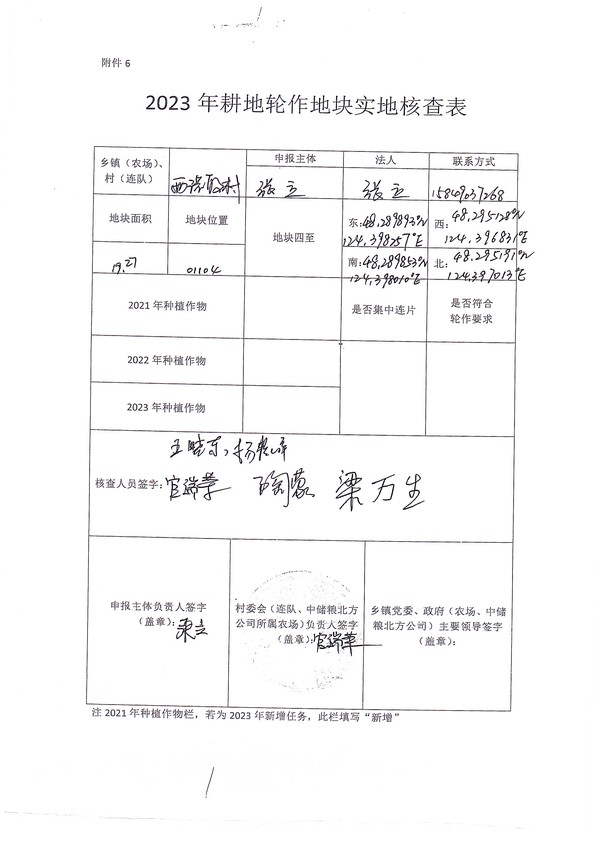 附件 6
2023 年耕地轮作地块实地核查表
乡镇（农场）、
村（连队）
申报主体
法人
联系方式
张立
张立
15849037268
地块面积
地块位置
地块四至
东：48.289893°N
124.398257°E
西：48.295128°N
124.396831°E
19.27
01104
南：48.289853°N
124.398010°E
北：48.295191°N
124.397013°E
2021 年种植作物
是否集中连片
是否符合
轮作要求
2022 年种植作物
2023 年种植作物
核查人员签字：官瑞苹 陶蕊 梁万生
申报主体负责人签字
（盖章）：
村委会（连队、中储粮北方
公司所属农场）负责人签字
（盖章）：官瑞苹
乡镇党委、政府（农场、中储
粮北方公司）主要领导签字
（盖章）：
注 2021 年种植作物栏，若为 2023 年新增任务，此栏填写“新增”